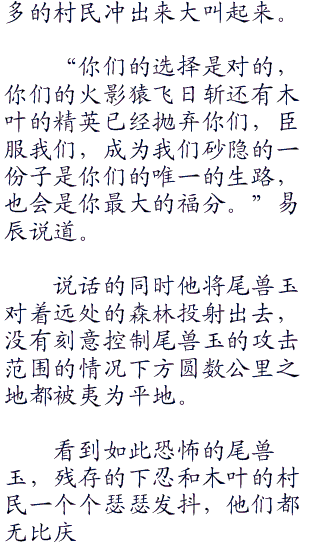 多的村民冲出来大叫起来。
“你们的选择是对的，
你们的火影猿飞日斩还有木
叶的精英已经抛弃你们，臣
服我们，成为我们砂隐的一
份子是你们的唯一的生路，
也会是你最大的福分。”易
辰说道。
说话的同时他将尾兽玉
对着远处的森林投射出去，
没有刻意控制尾兽玉的攻击
范围的情况下方圆数公里之
地都被夷为平地。
看到如此恐怖的尾兽
玉，残存的下忍和木叶的村
民一个个瑟瑟发抖，他们都
无比庆